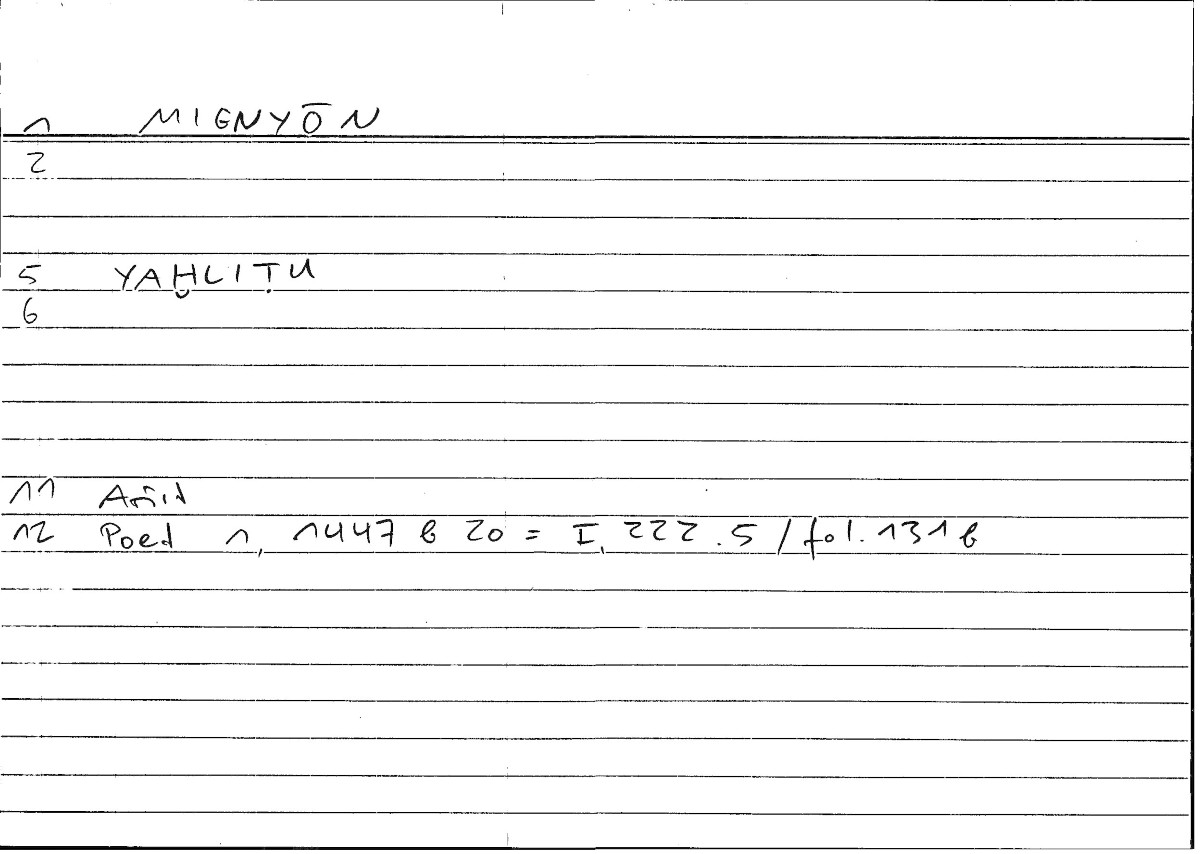 1 MIGNYŌN
2
5 YAḪLIṬU
6
11
12 Poet 1, 1447 b 20 = I, 222.5 / fol. 131 b